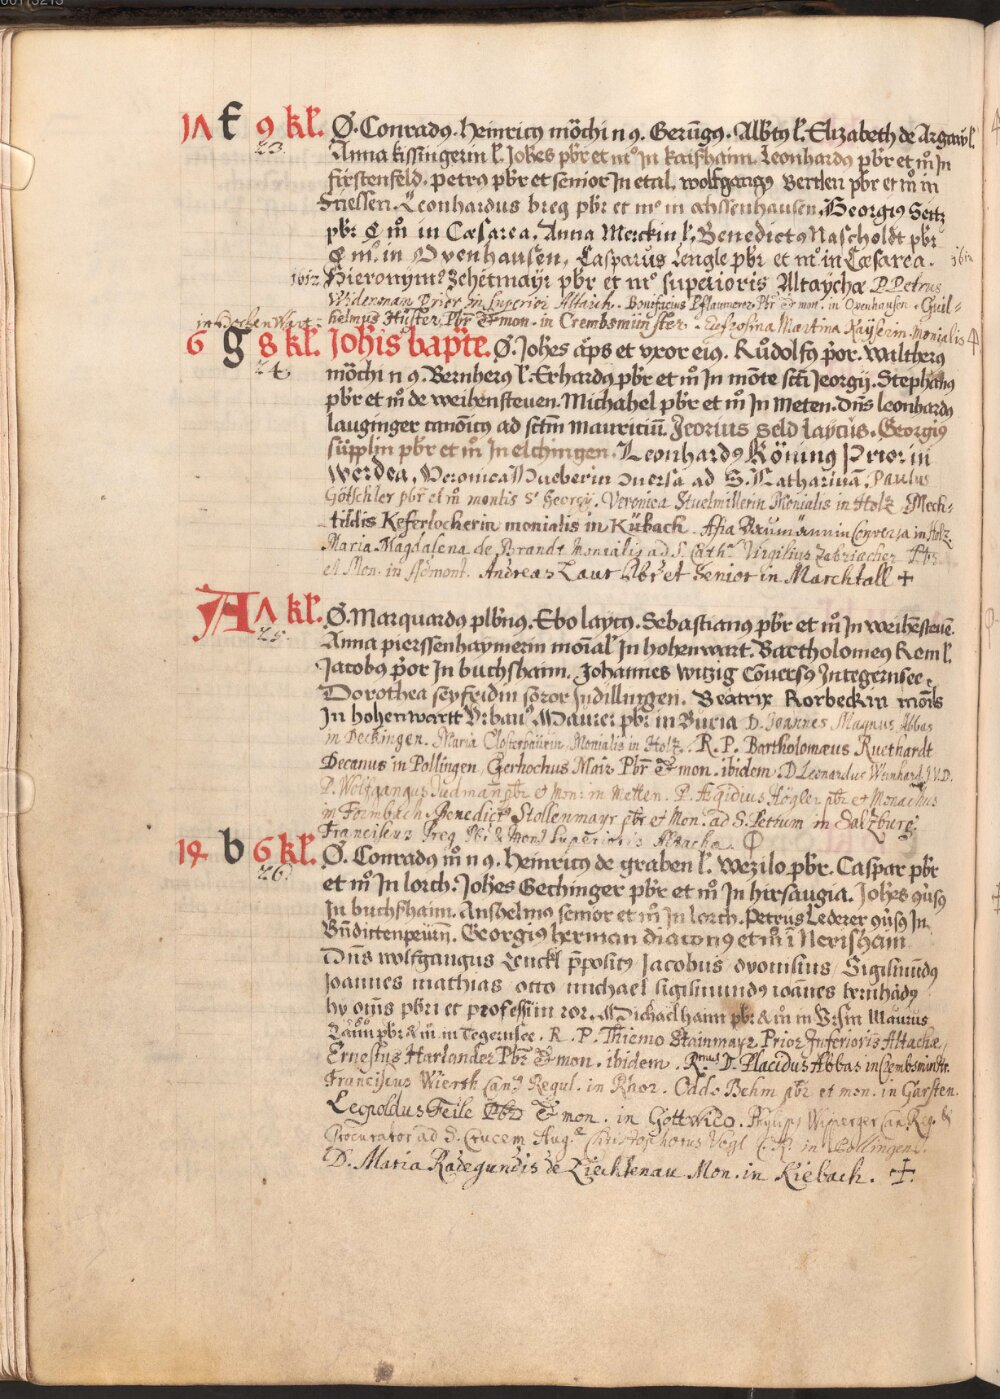 17 f 9 kl. Ø. Conradus. Heinricus möchi n 9. Gerungus. Albtus l. Elizabeth de Argaw l.
23. Anna kissingerin l. Johes pbr et mo In kaishaim. Leonhardus pbr et mo In
firstenfeld. petrus pbr et senior In etal. wolfgangus Bertlen pbr et mo in
Fiessen. Leonhardus breg pbr et mo in ochssenhausen. Georgius Seitz
pbr & mo in Cæsarea. Anna Merckin l. Benedictus Nascholdt pbr
& mo. in Ovenhausen, Casparus Lengle pbr et mo in Cæsarea. 1612
1612 Hieronymus Zehetmayr pbr et mo superioris Altaychæ P. Petrus
Widenman Prior in superior Altaich. Bonifacius Pflaumerer Pbr & mon. in Ovenhausen. Guil-
helmus Hüster Pbr & mon. in Crembsmünster. Eufrosina Martina Kayserin Monialis
in Hochen Wart.
6 g 8 kl. Johis bapte. Ø. Johes aps et vxor eius. Rudolfus por. Waltherus
24. möchi n 9. Bernherus l. Erhardus pbr et mo In mote scti Jeorgij. Stephanus
pbr et mo de weihensteven. Michahel pbr et mo In Meten. Dns leonhardus
lauginger canoicus ad sctm mauriciu. Jeorius Seld laycus. Georgius
süpplin pbr et mo In elchingen. Leonhardus Röning Prior in
Werdea. Veronica Hueberin ouersa ad S. Catharina. Paulus
Götschler pbr et mo montis S. Georgij. Veronica Stuelmillerin Monialis in Holz. Mech-
tildis Keferlocherin monialis in Kübach. Afia Baumännin Conversa in Holz.
Maria Magdalena de Brandt Monialis ad S. Cath. Virgilius Zabriacher Pbr.
et Mon. in Admont. Andreas Laur Pbr et Senior in Marchtall +
A 7 kl. Ø. Marquardus plbnus. Ebo laycus. Sebastianus pbr et mo In weihesteue.
25. Anna pierssenhaymerin moial In hohenwart. Bartholomeus Rem l.
Jacobus por In buchshaim. Johannes witzig Couersus Integernsee.
Dorothea seyfridin soror Indillingen. Beatrix Rorbeckin moils
In hohenwartt Vrbaus Maurer pbr in Buria D. Joannes Magnus Abbas
in Deckingen. Maria Closterbaürin Monialis in Holz. R. P. Bartholomæus Ruethardt
Decanus in Pollingen, Gerhochus Mair Pbr & mon. ibidem. D. Leonardus Weinhard. J.V.D.
P. Wolfgangus Iudman pbr et Mon: in Metten. P. Ægidius Högler pbr et Monachus
in Formbach. Benedictus Stollenmayr pbr et Mon. ad S. Petrum in Salzburg.
Franciscus Preg Pbr & Mon. Superioris Altachæ.
14 b 6 kl. Ø. Conradus mo n 9. Heinricus de graben l. Wezilo pbr. Caspar pbr
26. et mo In lorch. Johes Gechinger pbr et mo In hirsaugia. Johes 9usus
In buchshaim. Anshelmus senior et mo In lorch. Petrus Lederer 9usus In
Bndictenpeurn. Georgius herman diaconus et mo i Nerishaim
Dns wolfgangus Lenckl ppolitus Jacobus dyonisius Sigismundus
Joannes mathias otto michael sigismundus ioanes bernhadus
hy oms pbri et professi in ror. Michael hann pbr & mo in Vrsin Maurus
pbr & mo. in Tegernsee. R. P. Thiemo Stainmayr Prior Inferioris Altachæ,
Ernestus Harlander Pbr & mon. ibidem. Rmus D. Placidus Abbas in Crembsminstr.
Franciscus Wiersh Can. Regul. in Raor. Oddo Behm pbr et mon. in Garsten.
Leopoldus Feile Pbr & mon. in Gottwico. Philipp Wisperger Can. Reg. &
Procurator ad S. Crucem Aug. Christophorus Vogl C. R. in Pollingen.
D. Maria Radegundis de Liechtenau Mon. in Kiebach. +